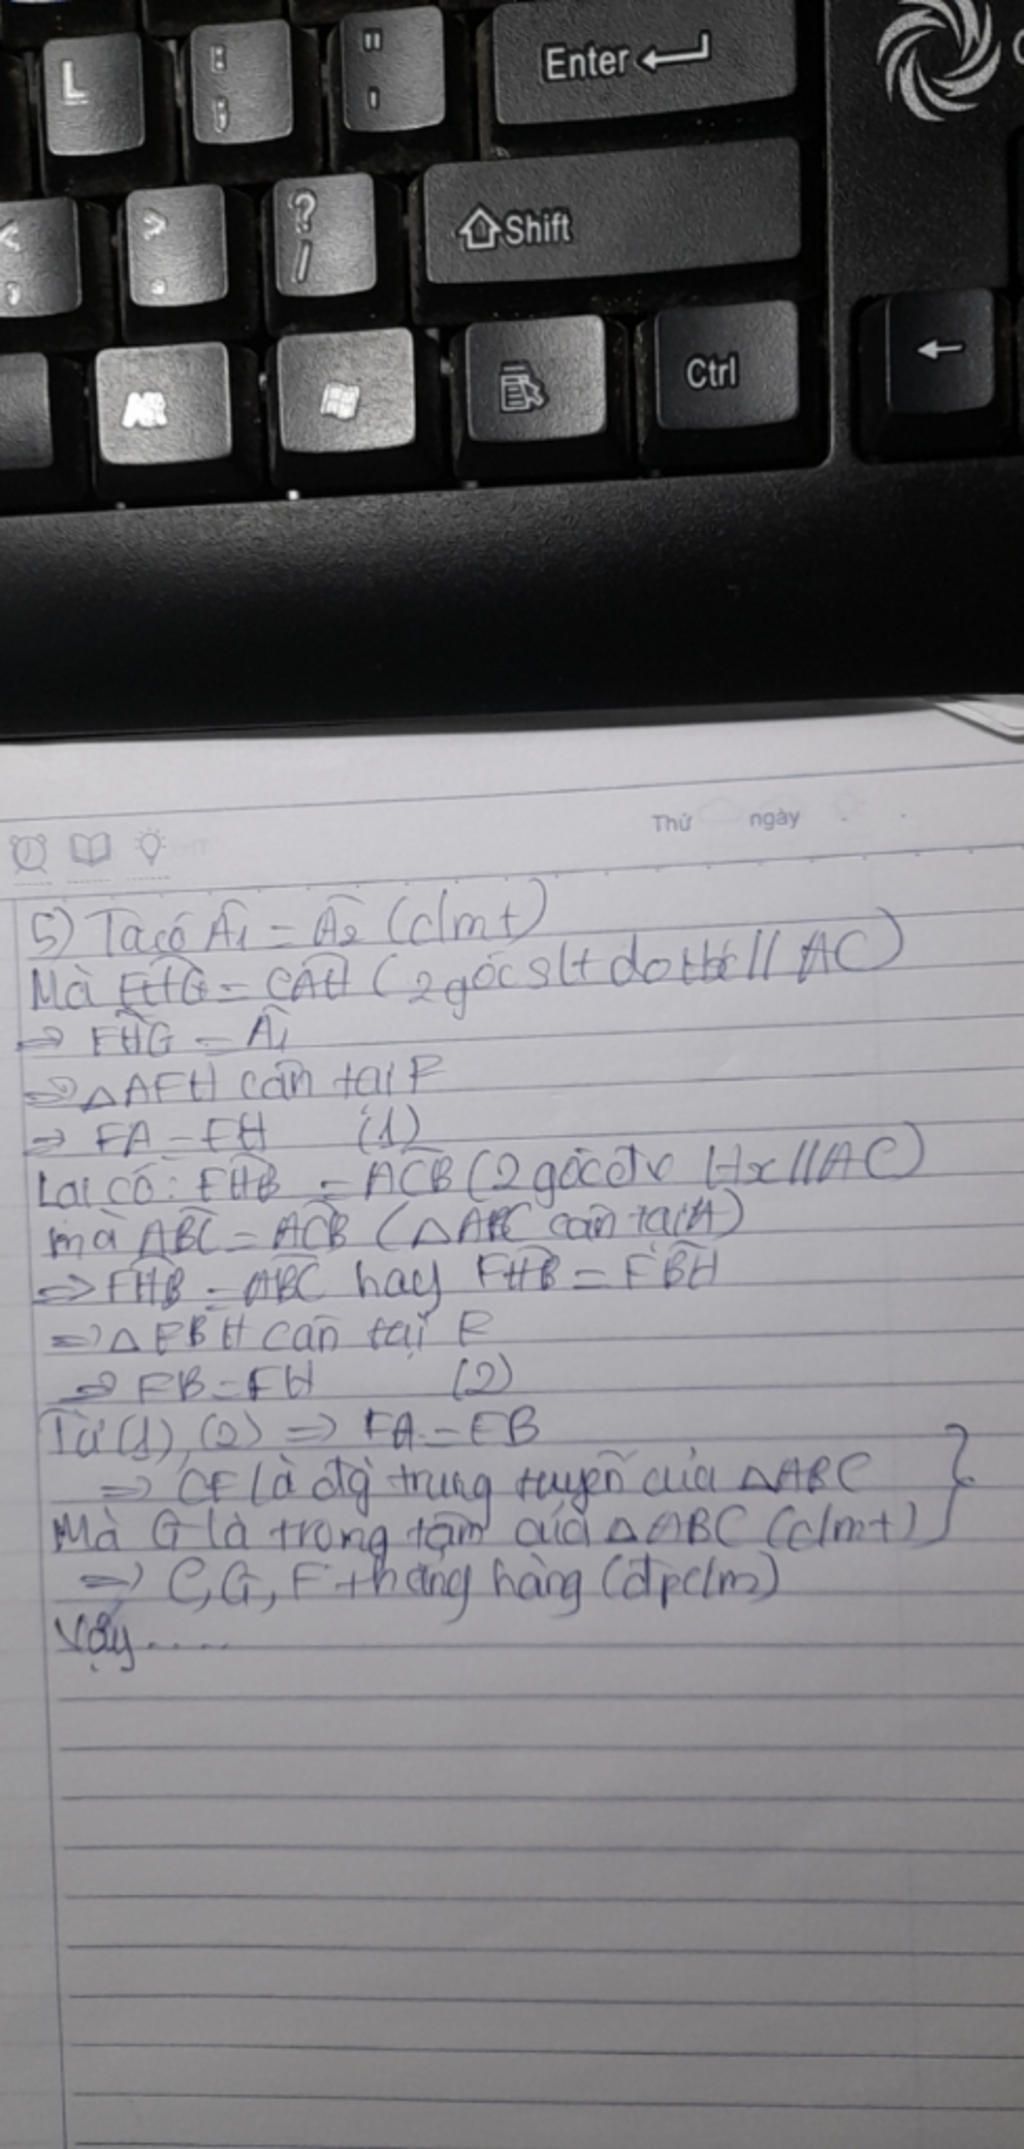 L : ; " ' Enter
< , > . ? / Shift
Alt Ctrl
Thứ ngày
5) Ta có Â1 = Â2 (c/mt)
Mà FHG = CAH (2 góc slt do // AC)
⇒ FHG = Â1
⇒ △AFH cân tại F
⇒ FA = FH (1)
Lại có: FHB = ACB (2 góc đv Hx // AC)
mà ABC = ACB (△ABC cân tại A)
⇒ FHB = ABC hay FHB = FBH
⇒ △FBH cân tại F
⇒ FB = FH (2)
Từ (1), (2) ⇒ FA = FB
⇒ CF là đg` trung tuyến của △ABC
Mà G là trọng tâm của △ABC (c/mt) }
⇒ C, G, F thẳng hàng (đpc/m)
Vậy.....